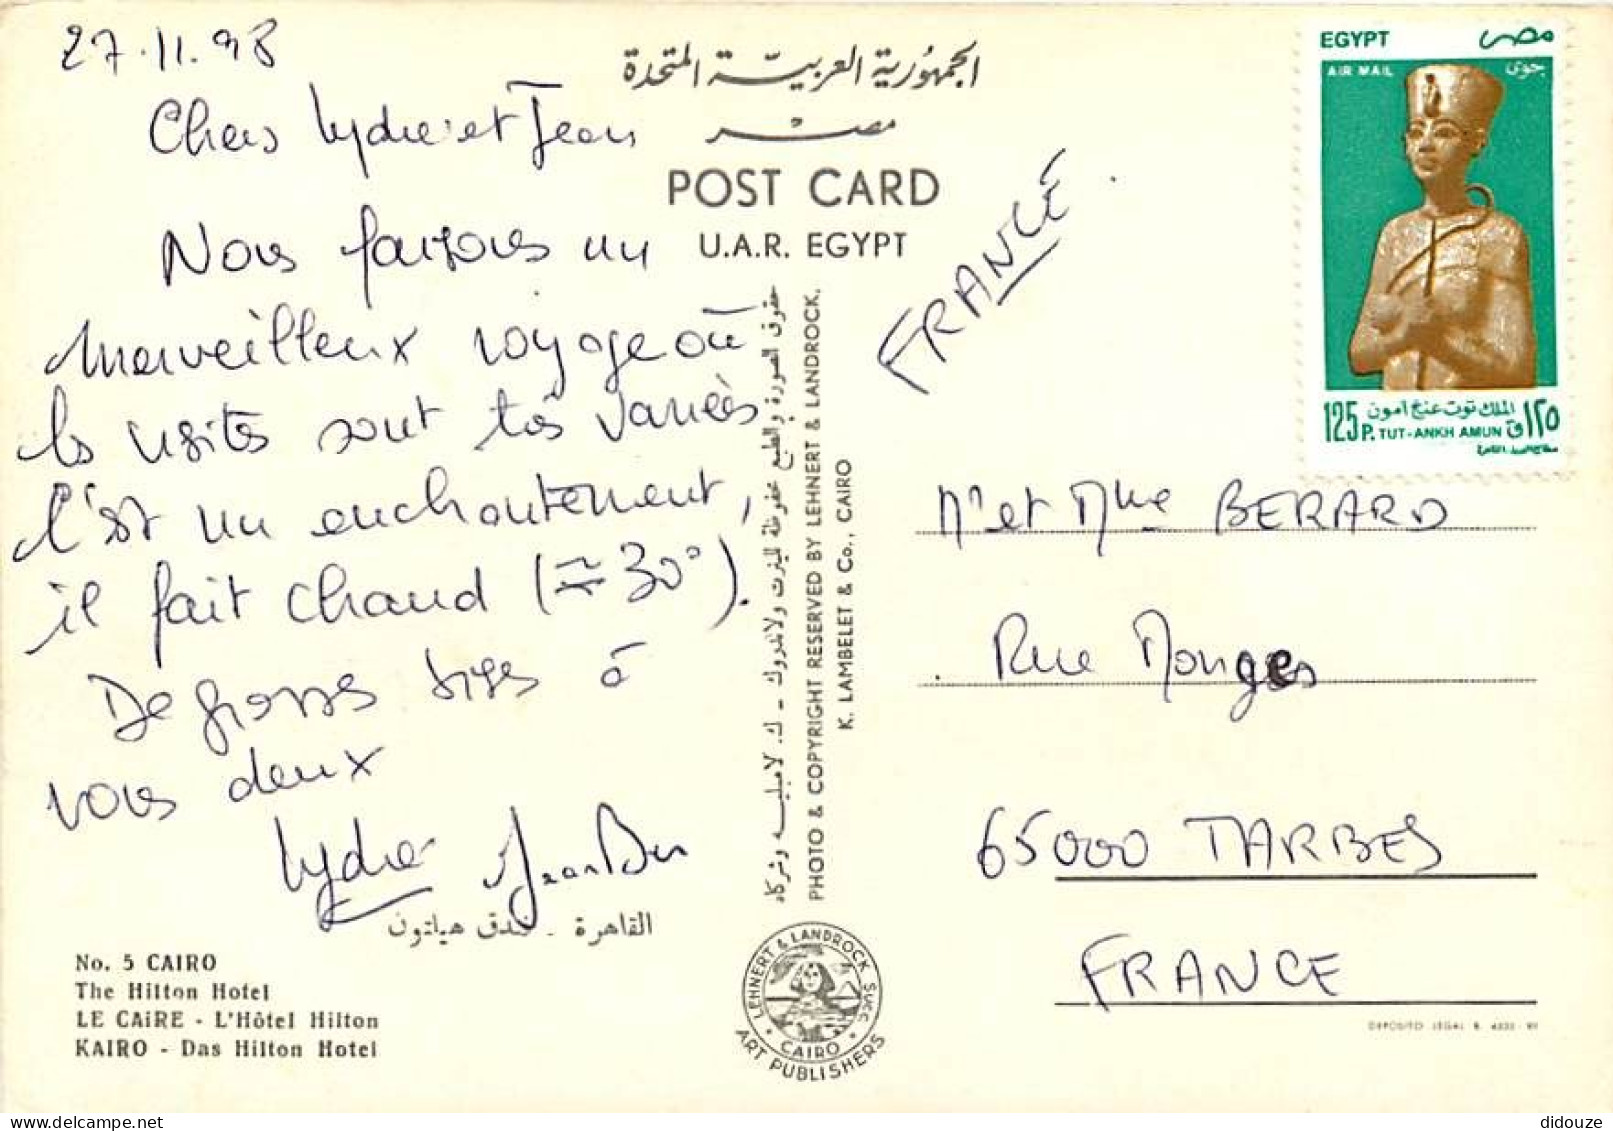 27.11.98
Chers Lydie et Jean
Nous faisons un
merveilleux voyage où
les visites sont très variées
C'est un enchantement,
il fait chaud (≈ 30°).
De grosses bises à
vous deux
Lydie
القاهرة - فندق هيلتون
No. 5 CAIRO
The Hilton Hotel
LE CAiRE - L'Hôtel Hilton
KAIRO - Das Hilton Hotel
الجمهورية العربية المتحدة
مصر
POST CARD
U.A.R. EGYPT
حقوق الصورة والطبع محفوظة للينرت ولاندروك - ك. لامبليه وشركاه
PHOTO & COPYRIGHT RESERVED BY LEHNERT & LANDROCK.
K. LAMBELET & Co., CAIRO
LEHNERT & LANDROCK SUCC.
CAIRO
ART PUBLISHERS
FRANCE
EGYPT مصر
AIR MAIL جوى
الملك توت عنخ آمون
125 P. TUT-ANKH AMUN ق ١٢٥
Mr et Mme BERARD
Rue Monges
65000 TARBES
FRANCE
didouze